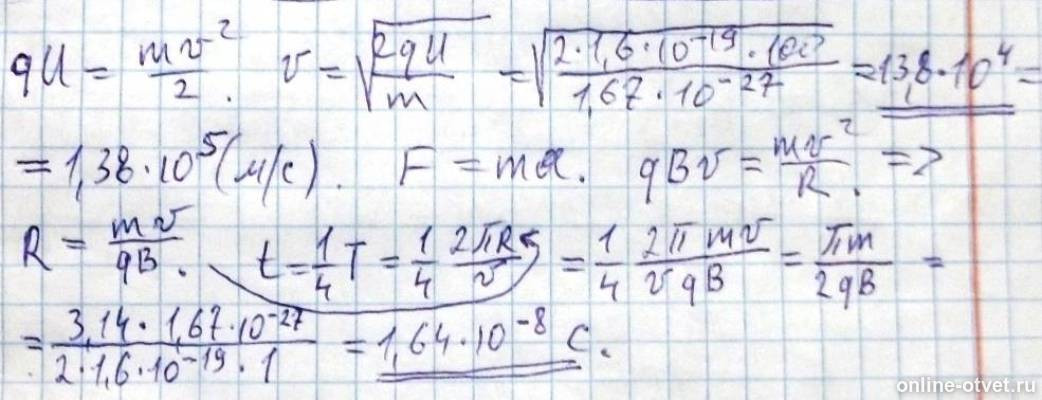 qU = mv²/2. v = √(2qU/m) = √(2·1,6·10⁻¹⁹·100/1,67·10⁻²⁷) = 13,8·10⁴ =
= 1,38·10⁵ (м/с). F = ma. qBv = mv²/R. =>
R = mv/qB. t = 1/4 T = 1/4 2πR/v = 1/4 2π mv/v qB = πm/2qB =
= 3,14·1,67·10⁻²⁷/2·1,6·10⁻¹⁹·1 = 1,64·10⁻⁸ с.
online-otvet.ru